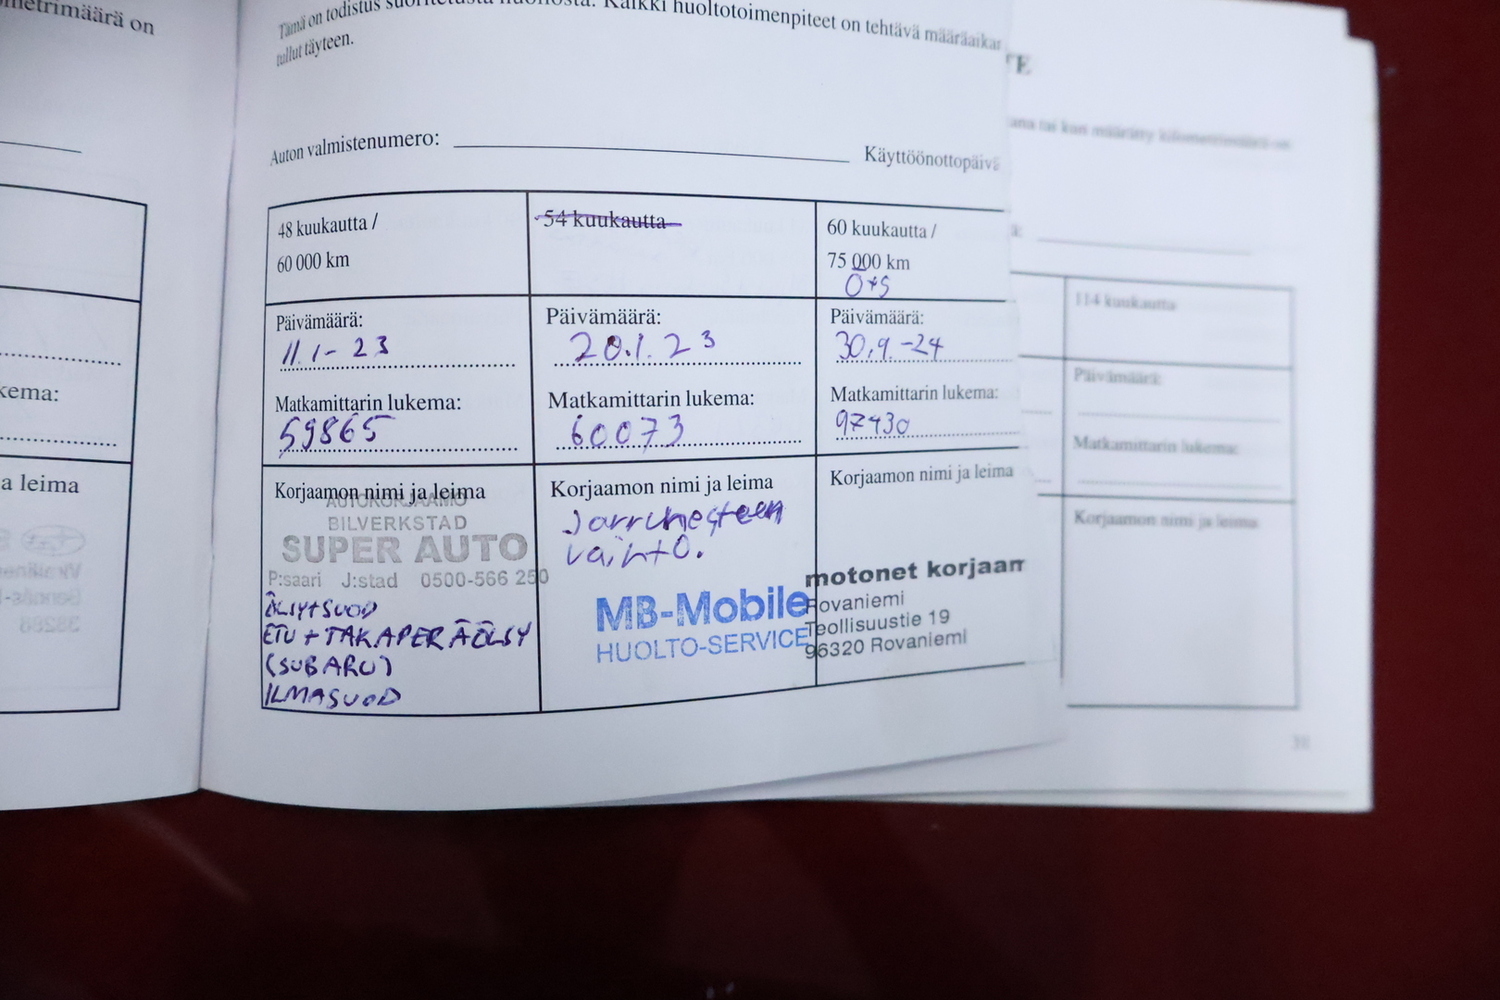 metrimäärä on
kema:
a leima
Tämä on todistus suoritetusta huollosta. Kaikki huoltotoimenpiteet on tehtävä määräaikan
tullut täyteen.
Auton valmistenumero:
Käyttöönottopäivä
48 kuukautta /
60 000 km
Päivämäärä:
11.1-23
Matkamittarin lukema:
59865
Korjaamon nimi ja leima
AUTOKORJAAMO
BILVERKSTAD
SUPER AUTO
P:saari J:stad 0500-566 250
ÖLJY+SUOD
ETU + TAK.APERÄÖLJY
(SUBARU)
ILMASUOD
54 kuukautta
Päivämäärä:
20.1.23
Matkamittarin lukema:
60073
Korjaamon nimi ja leima
Jarrunesteen
vaihto.
MB-Mobile
HUOLTO-SERVICE
60 kuukautta /
75 000 km
Ö+S
Päivämäärä:
30.9-24
Matkamittarin lukema:
97430
Korjaamon nimi ja leima
motonet korjaam
Rovaniemi
Teollisuustie 19
96320 Rovaniemi
TE
ana tai kun määrätty kilometrimäärä on
114 kuukautta
Päivämäärä:
Matkamittarin lukema:
Korjaamon nimi ja leima